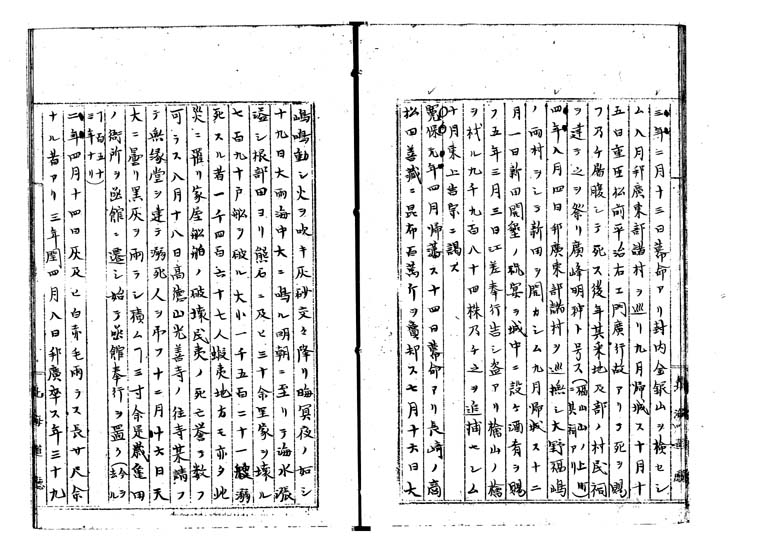 三年二月十三日幕命アリ封内金銀山ヲ検セシ
ム八月邦廣東部諸村ヲ巡リ九月帰城ス十月十
五日重臣松前平治右エ門廣行故アリテ死ヲ賜
フ乃チ屠腹シテ死ス後年其采地及部ノ村民祠
ヲ建テ之ヲ祭リ廣峰明神ト号ス
四年八月四日邦廣東部諸村ヲ巡撫シ大野福嶋
ノ両村ヲシテ新田ヲ開カシム九月帰城ス十二
月一日新田開墾ノ祝宴ヲ城中ニ設ケ酒肴ヲ賜
フ五年三月三日江差奉行告シ盗アリ檜山ノ檜
ヲ伐ル九千九百八十四株乃チ之ヲ追捕セシム
十月東上告宗ニ謁ス
寛保元年四月帰藩ス十四日幕命アリ長崎ノ商
松田善蔵ニ昆布百万斤ヲ賣却ス七月十六日大
嶋鳴動シ火ヲ吹キ灰砂交々降リ晦冥夜ノ如シ
十九日大雨海中大ニ鳴ル明朝ニ至リテ海水漲
溢シ根部田ヨリ熊石ニ及ヒ三十余里家ヲ壊ル
七百九十戸船ヲ破ル大小一千五百二十一艘溺
死スル者一千四百六十七人蝦夷地方モ亦多少此
災ニ罹リ家屋船舶ノ破壊民夷ノ死亡挙テ数フ
可ラス八月十八日高徳山光善寺ノ住寺某請フ
テ無縁堂ヲ建テ溺死人ヲ弔フ十二月十六日天
大ニ曇リ黒灰ヲ雨ラシ積ム三寸余是歳亀田
ノ衙所ヲ函館ニ遷シ始テ函館奉行ヲ置ク
二年四月十四日灰及ヒ白赤毛雨ラス長サ尺余
ナル者アリ三年閏四月八日邦廣卒ス年三十九
北海道志